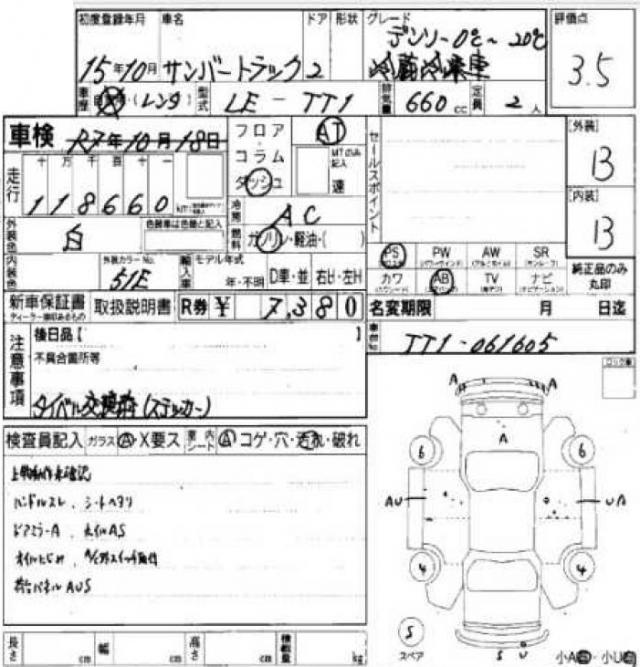 初度登録年月 車名 ドア 形状 グレード 評価点
デンソー 0℃~-20℃
15年10月 サンバートラック 2 冷蔵冷凍車 3.5
車歴 自家・(レンタ) 型式 LE-TT1 排気量 660cc 定員 2人
車検 R7年10月18日 フロア AT セールスポイント [外装]
コラム MTのみ記入 B
走行 十万千百十一 ダッシュ 速
118660 km 冷房 AC [内装]
外装色 白 色替車は色替と記入 燃料 ガソリン・軽油・( ) B
内装色 外装カラーNo. 51E 輸入車 モデル年式 年・不明 D車・並 右H・左H
PS PW AW SR 純正品のみ丸印
カワ AB TV ナビ
新車保証書 取扱説明書 R券 ¥ 7,380 名変期限 月 日迄
ディーラー捺印あるもの
車台No TT1-061605
注意事項 後日品[ ]
不具合箇所等
タイベル交換済(ステッカー)
検査員記入 ガラス A・X要ス 室内シート A コゲ・穴・汚れ・破れ
上物動作未確認
ハンドルスレ、シートヘタリ
ドアミラーA、ホイルAS
オイルにじみ、
荷台パネルAUS
A A
A
6 6
AU UA
4 4
S
スペア S U
小A 小U
長さ cm 幅 cm 高さ cm 積載量 kg